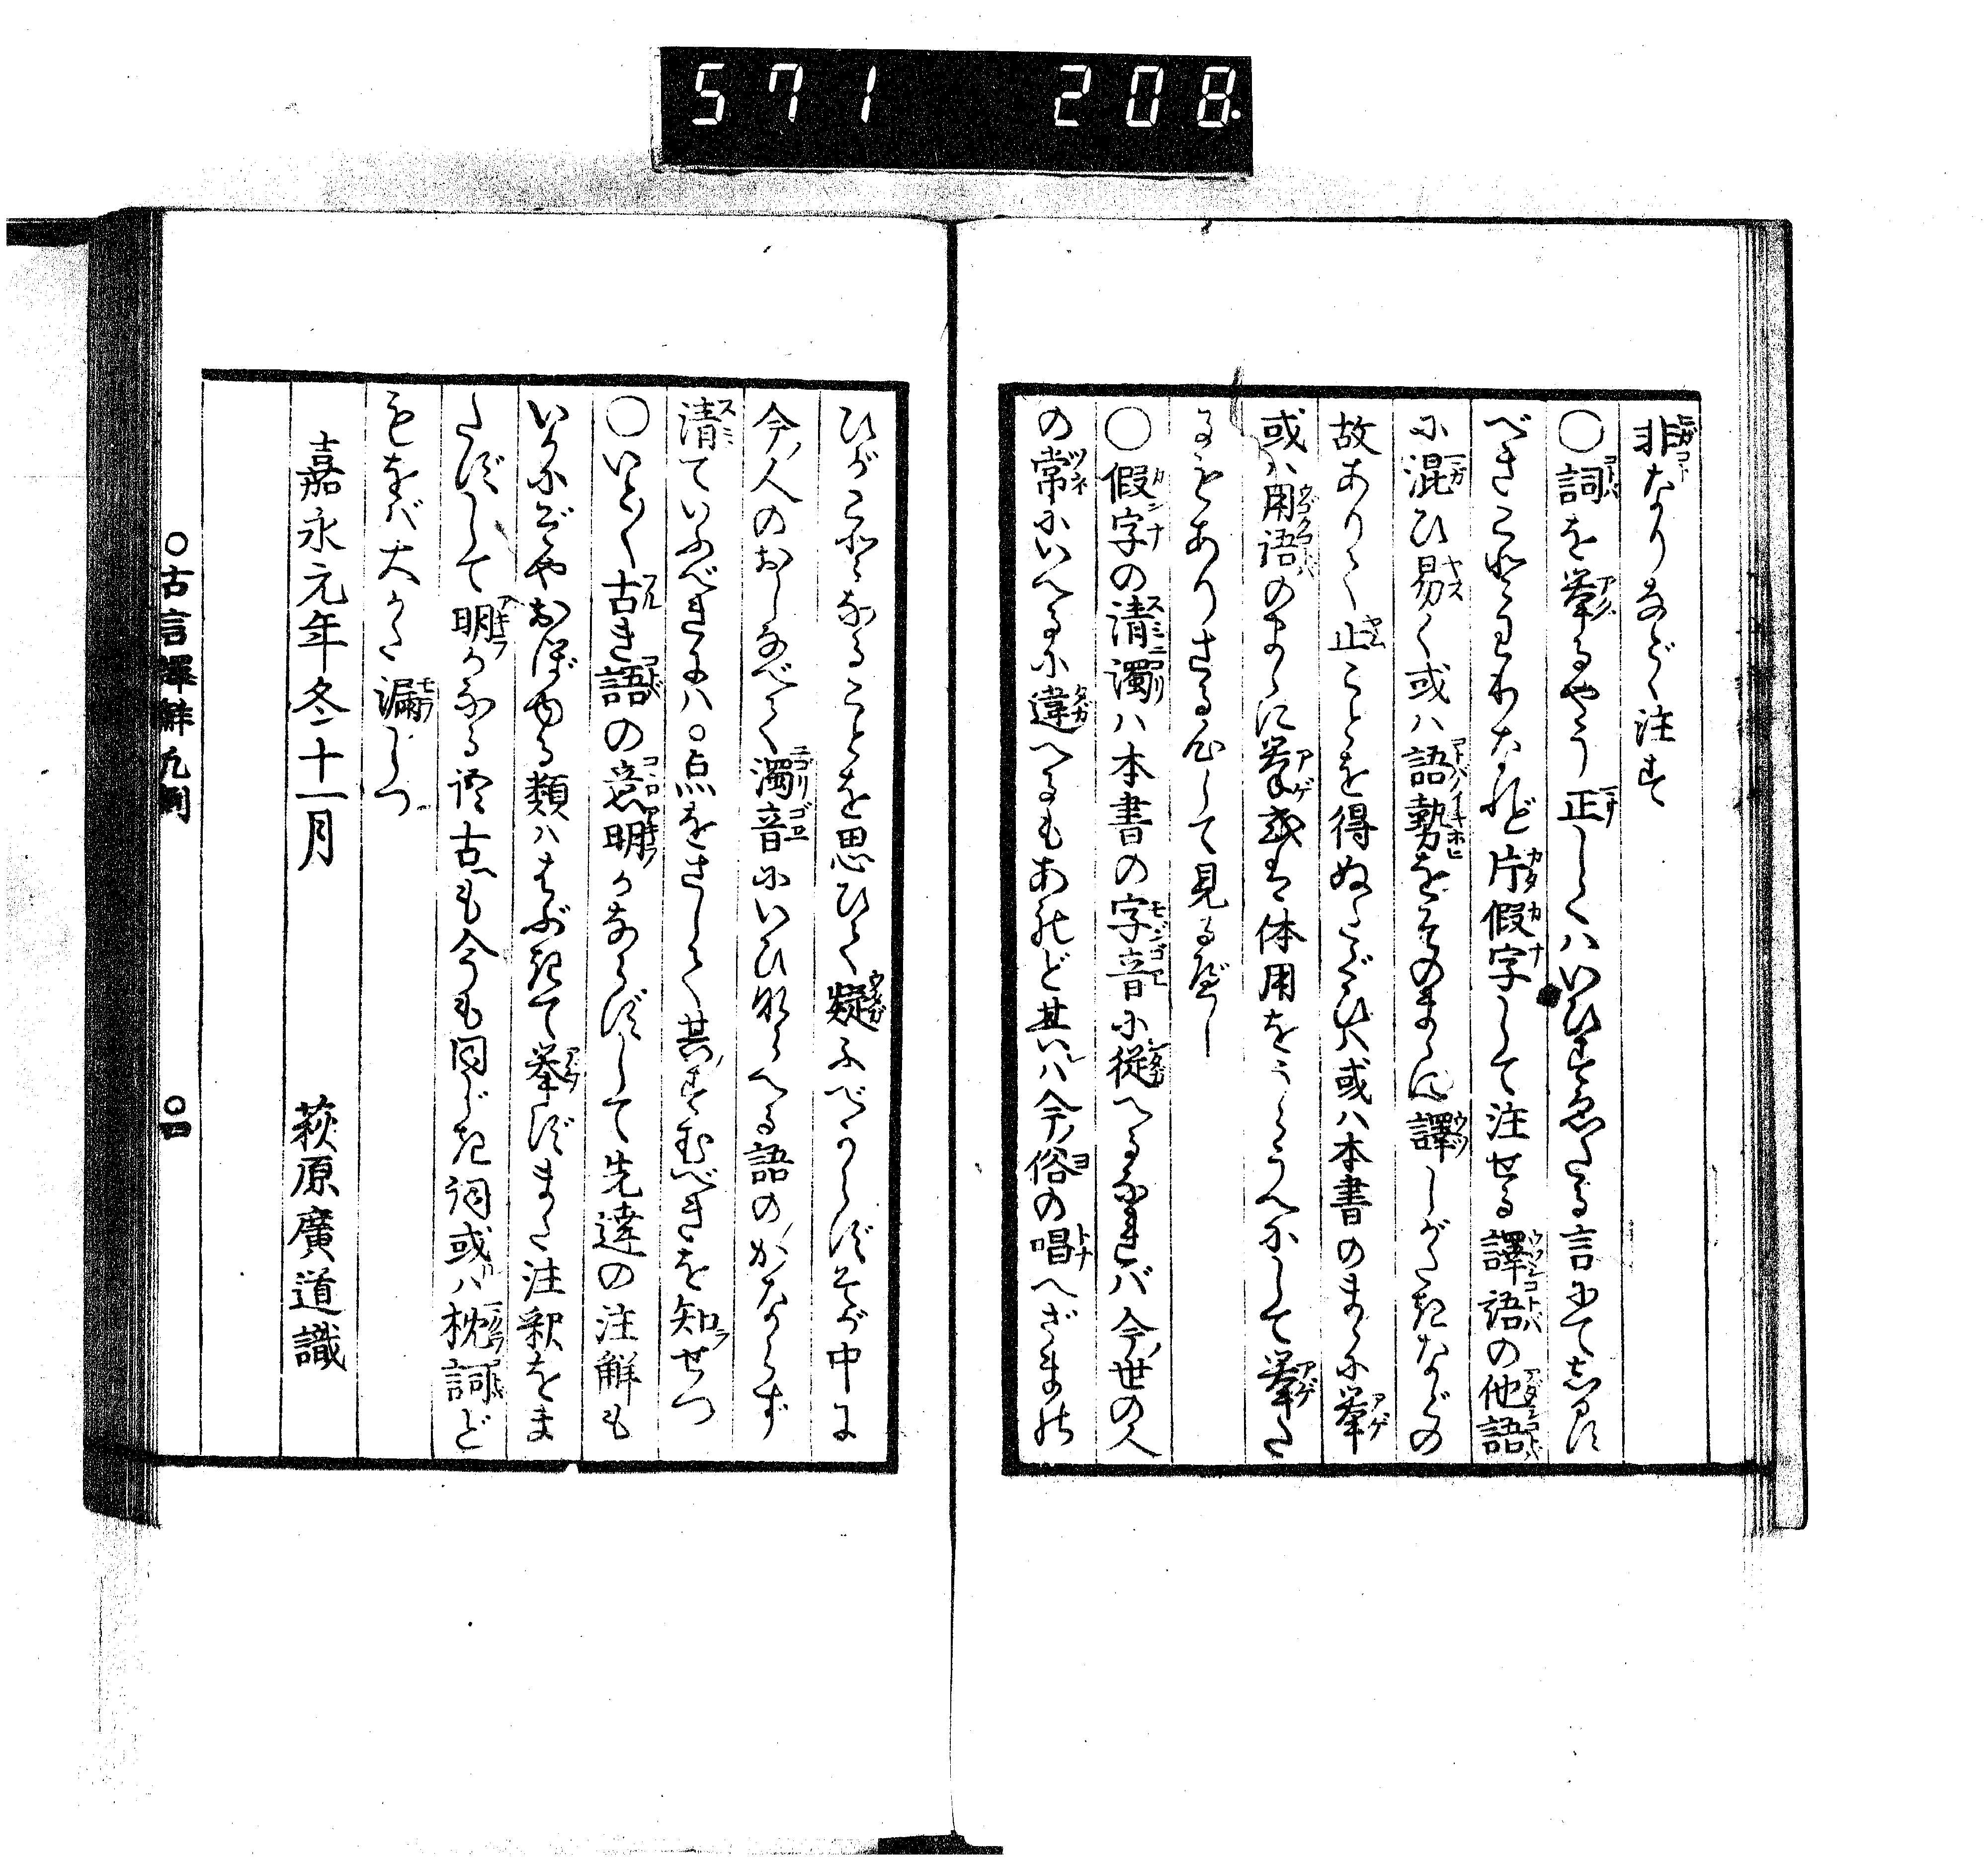 571 208
非なりなどゝ注す
〇詞を挙るやう正しくハいひすゑたる言にて志るす
べきことわりなれど片假字して注せる譯語の他語
に混ひ易く或ハ語勢をそのまゝに譯しがたきなどの
故ありて止ことを得ぬたぐひハ或ハ本書のまゝに挙
或ハ用語のまゝに挙或は体用をうしろうへにして挙た
るもありさる心して見るべし
〇假字の清濁ハ本書の字音に従へるなれバ今ノ世の人
の常にいへるに違へるもあれど其ハ今ノ俗の唱へざまの
ひがことなることを思ひて疑ふべからずそが中に
今ノ人のおしなべて濁音にいひ來れる語のかならず
清ていふべきにハ〇点をさして其すむべきを知せつ
〇いとゝ古き語の意明かならずして先達の注解も
いかにぞやおぼゆる類ハはぶきて挙ずまた注釈をま
たずして明かなる語古も今も同じき詞或ハ枕詞ど
もをバ大かた漏しつ
嘉永元年冬十一月 萩原廣道識
〇古言譯解凡例 〇四